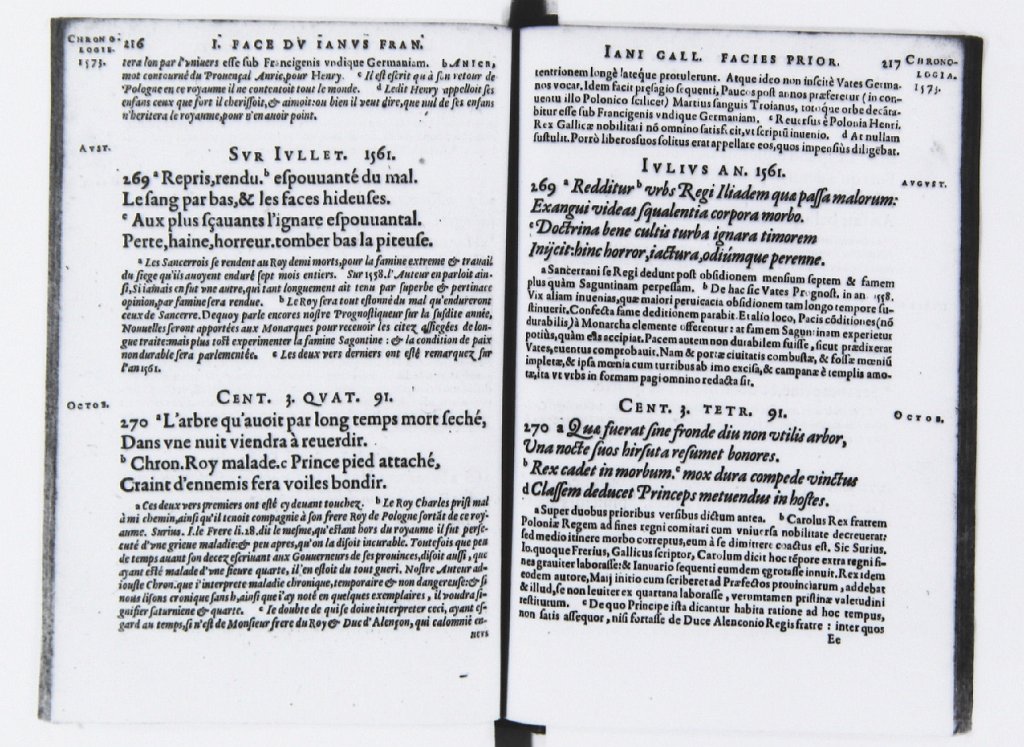 CHRONO-
LOGIE.
1573.
216 I. FACE DV IANVS FRAN.
tera lon par l'vniuers esse sub Francigenis vndique Germaniam. b ANRIC,
mot contourné du Prouençal Anric, pour Henry. c Il est escrit qu'à son retour de
Pologne en ce royaume il ne contentoit tout le monde. d Ledit Henry appelloit ses
enfans ceux que fort il cherissoit, & aimoit: ou bien il veut dire, que nul de ses enfans
n'heritera le royaume, pour n'en auoir point.
AVST.
SVR IVLLET. 1561.
269 a Repris, rendu. b espouuanté du mal.
Le sang par bas, & les faces hideuses.
c Aux plus sçauants l'ignare espouuantal.
Perte, haine, horreur. tomber bas la piteuse.
a Les Sancerrois se rendent au Roy demi morts, pour la famine extreme & trauail
du siege qu'ils auoyent enduré sept mois entiers. Sur 1558. l'Auteur en parloit ain-
si, Si iamais en fut vne autre, qui tant longuement ait tenu par superbe & pertinace
opinion, par famine sera rendue. b Le Roy sera tout estonné du mal qu'endureront
ceux de Sancerre. Dequoy parle encores nostre Prognostiqueur sur la susdite année,
Nouuelles seront apportées aux Monarques pour receuoir les citez assiegées de lon-
gue traite: mais plus tost experimenter la famine Sagontine: & la condition de paix
non durable sera parlementée. c Les deux vers derniers ont esté remarquez sur
l'an 1561.
OCTOB.
CENT. 3. QVAT. 91.
270 a L'arbre qu'auoit par long temps mort seché,
Dans vne nuit viendra à reuerdir.
b Chron. Roy malade. c Prince pied attaché,
Craint d'ennemis fera voiles bondir.
a Ces deux vers premiers ont esté cy deuant touchez. b Le Roy Charles prist mal
à mi chemin, ainsi qu'il tenoit compagnie à son frere Roy de Pologne sortāt de ce roy-
aume. Surius. I. le Frere li. 28. dit le mesme, qu'estant hors du royaume il fut perse-
cuté d'vne grieue maladie: & peu apres, qu'on la disoit incurable. Toutefois que peu
de temps auant son decez escriuant aux Gouuerneurs de ses prouinces, disoit aussi, que
ayant esté malade d'vne fieure quarte, il en estoit du tout gueri. Nostre Auteur ad-
iouste Chron. que i'interprete maladie chronique, temporaire & non dangereuse: & si
nous lisons cronique sans h, ainsi que i'ay noté en quelques exemplaires, il voudra si-
gnifier saturniene & quarte. c Ie doubte de qui se doiue interpreter ceci, ayant es-
gard au temps, si n'est de Monsieur frere du Roy & Duc d'Alençon, qui calomnié en-
uers
IANI GALL. FACIES PRIOR. 217
CHRONO-
LOGIA.
1573.
tentrionem longè latéque protulerunt. Atque ideo non inscitè Vates Germa-
nos vocar. Idem facit præsagio sequenti, Paucos post annos præferetur (in con-
uentu illo Polonico scilicet) Martius sanguis Troianus, totoque orbe decāta-
bitur esse sub Francigenis vndique Germaniam. c Reuersus è Polonia Henri.
Rex Gallicæ nobilitati nō omnino satisfecit, vt scriptū inuenio. d At nullam
sustulit. Porrò liberos suos solitus erat appellare eos, quos impensiùs diligebat.
IVLIVS AN. 1561.
AVGVST.
269 a Redditur b vrbs Regi Iliadem quæ passa malorum:
Exangui videas squalentia corpora morbo.
c Doctrina bene cultis turba ignara timorem
Inijcit: hinc horror, iactura, odiúmque perenne.
a Sancerrani se Regi dedunt post obsidionem mensium septem & famem
plus quàm Saguntinam perpessam. b De hac sic Vates Prognost. in an 1558.
Vix aliam inuenias, quæ maiori peruicacia obsidionem tam longo tempore su-
stinuerit. Confecta fame deditionem parabit. Et alio loco, Pacis cōditiones (nō
durabilis) à Monarcha elemente offerentur: at famem Saguntinam experietur
potiùs, quàm eas accipiat. Pacem autem non durabilem fuisse, sicut prædixerat
Vates, euentus comprobauit. Nam & portæ ciuitatis combustæ, & fossæ mœniū
impletæ, & ipsa mœnia cum turribus ab imo excisa, & campanæ è templis amo-
tæ, ita vt vrbs in formam pagi omnino redacta sit.
CENT. 3. TETR. 91.
OCTOB.
270 a Quæ fuerat sine fronde diu non vtilis arbor,
Vna nocte suos hirsuta resumet honores.
b Rex cadet in morbum. c mox dura compede vinctus
d Classem deducet Princeps metuendus in hostes.
a Super duobus prioribus versibus dictum antea. b Carolus Rex fratrem
Poloniæ Regem ad fines regni comitari cum vniuersa nobilitate decreuerat:
sed medio itinere morbo correptus, eum à se dimittere coactus est. Sic Surius.
Io. quoque Frerius, Gallicus scriptor, Carolum dicit hoc tēpore extra regni fi-
nes grauiter laborasse: & Ianuario sequenti eumdem ægrotasse innuit. Rex idem
eodem autore, Maij initio cum scriberet ad Præfectos prouinciarum, addebat
& illud, se non leuiter ex quartana laborasse, verumtamen pristinæ valetudini
restitutum. c De quo Principe ista dicantur habita ratione ad hoc tempus,
non satis assequor, nisi fortasse de Duce Alenconio Regis fratre: inter quos
Ee